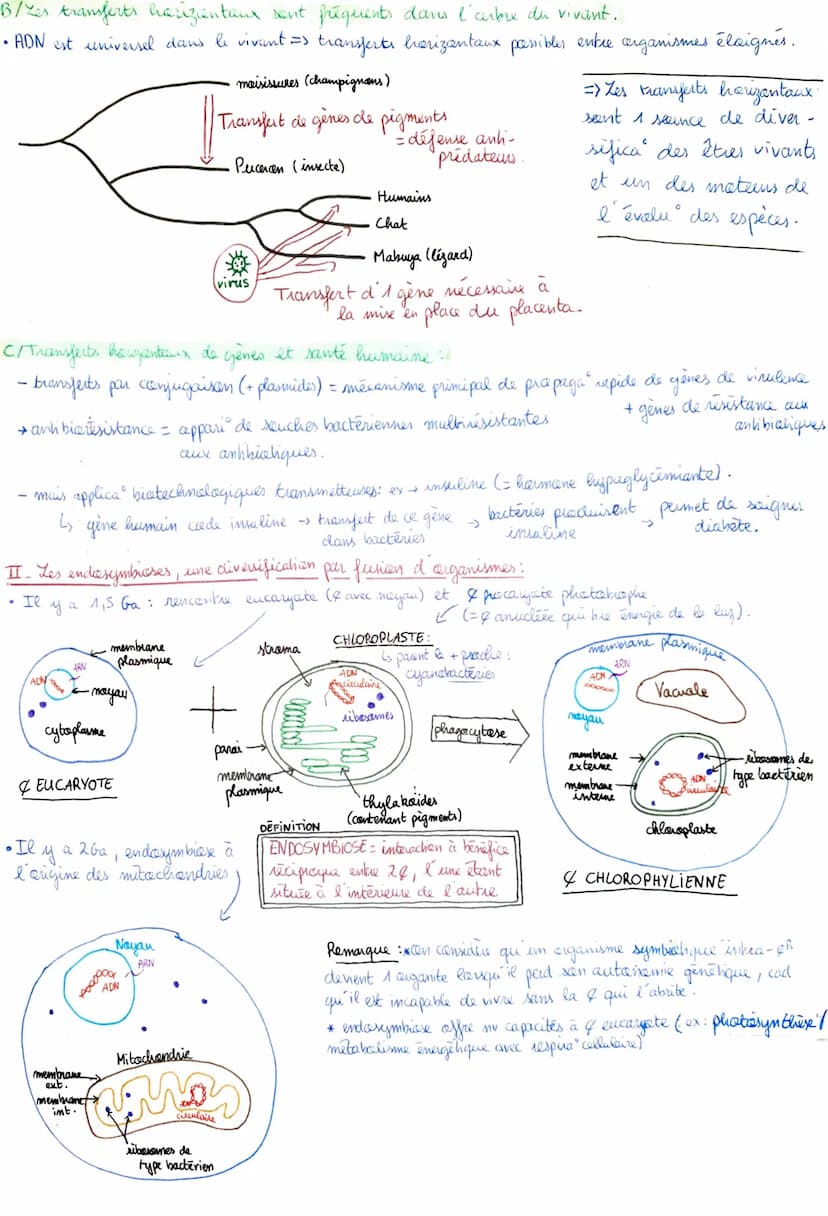 B/Les transferts horizontaux sont fréquents dans l'arbre du vivant.
• ADN est universel dans le vivant => transferts horizontaux possibles entre organismes éloignés.
moisissures (champignons)
Transfert de gènes de pigments
= défense anti-
prédateurs.
Puceron (insecte)
Humains
Chat
Mabuya (lézard)
virus
Transfert d'1 gène nécessaire à
la mise en place du placenta.
=> Les transferts horizontaux
sont 1 source de diver-
sifica° des êtres vivants
et un des moteurs de
l'évolu° des espèces.
C/Transferts horizontaux de gènes et santé humaine :
- transferts par conjugaison (+ plasmides) = mécanisme principal de propaga° rapide de gènes de virulence
+ gènes de résistance aux
antibiotiques
→ antibiorésistance = appari° de souches bactériennes multirésistantes
aux antibiotiques.
- mais applica° biotechnologiques transmetteuses: ex → insuline (= hormone hypoglycémiante).
↳ gène humain code insuline → transfert de ce gène
dans bactéries
→ bactéries produisent
insuline
→ permet de soigner
diabète.
II - Les endosymbioses, une diversification par fusion d'organismes:
• Il y a 1,5 Ga : rencontre eucaryote (¢ avec noyau) et ¢ procaryote phototrophe
(= ¢ anucléée qui tire énergie de la lux).
membrane
plasmique
ARN
ADN
noyau
cytoplasme
¢ EUCARYOTE
+
CHLOROPLASTE:
↳ parent le + proche :
cyanobactéries
stroma
ADN
circulaire
ribosomes
paroi
membrane
plasmique
thylakoïdes
(contenant pigments)
phagocytose
membrane plasmique
ARN
ADN
noyau
Vacuole
membrane
externe
membrane
interne
ribosomes de
type bactérien
ADN
circulaire
chloroplaste
¢ CHLOROPHYLIENNE
DÉFINITION
ENDOSYMBIOSE = interaction à bénéfice
réciproque entre 2¢, l'une étant
située à l'intérieure de l'autre
• Il y a 2Ga, endosymbiose à
l'origine des mitochondries
Noyau
ARN
ADN
Mitochondrie
membrane
ext.
membrane
int.
circulaire
ribosomes de
type bactérien
Remarque : * on considère qu'un organisme symbiotique intra-¢R
devient 1 organite lorsqu'il perd son autonomie génétique, cad
qu'il est incapable de vivre sans la ¢ qui l'abrite.
* endosymbiose offre nv capacités à ¢ eucaryote (ex : photosynthèse /
métabolisme énergétique avec respira° cellulaire)